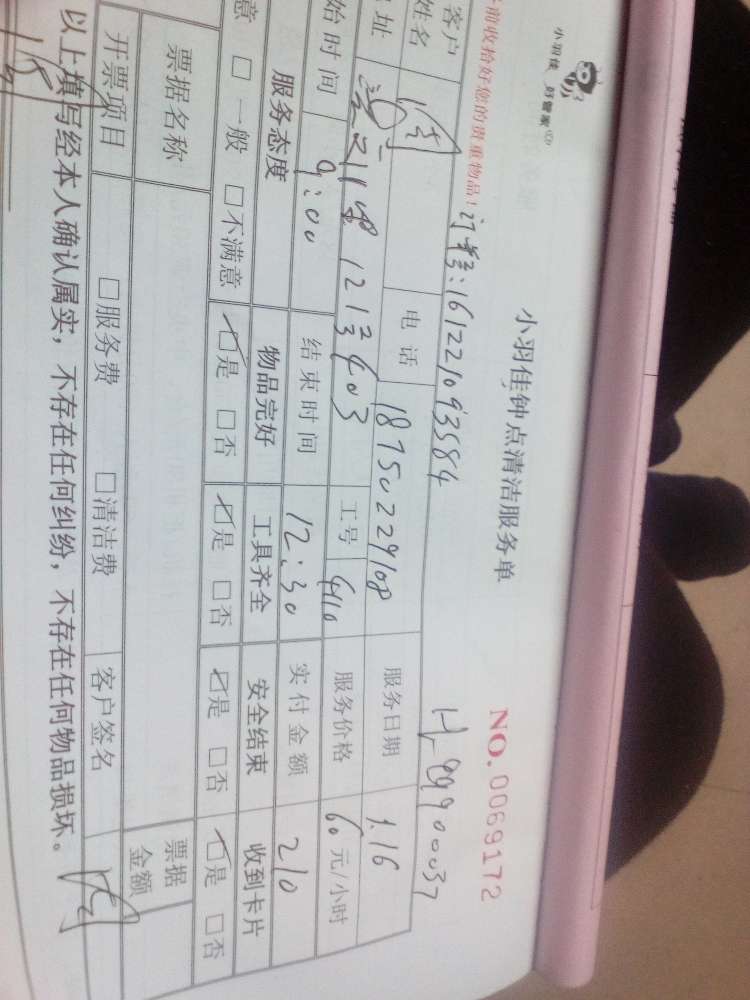 小羽佳 好管家
小羽佳钟点清洁服务单
NO.0069172
前收拾好您的贵重物品! 订单号:161221093584
客户姓名 电话 18750229108 服务日期 1.16
址 1213 403 工号 服务价格 60元/小时
始时间 9:00 结束时间 12:30 实付金额 210
服务态度 物品完好 工具齐全 安全结束 收到卡片
意 □一般 □不满意 ☑是 □否 ☑是 □否 ☑是 □否 ☑是 □否
票据名称 票据金额
开票项目 □服务费 □清洁费 客户签名
以上填写经本人确认属实，不存在任何纠纷，不存在任何物品损坏。